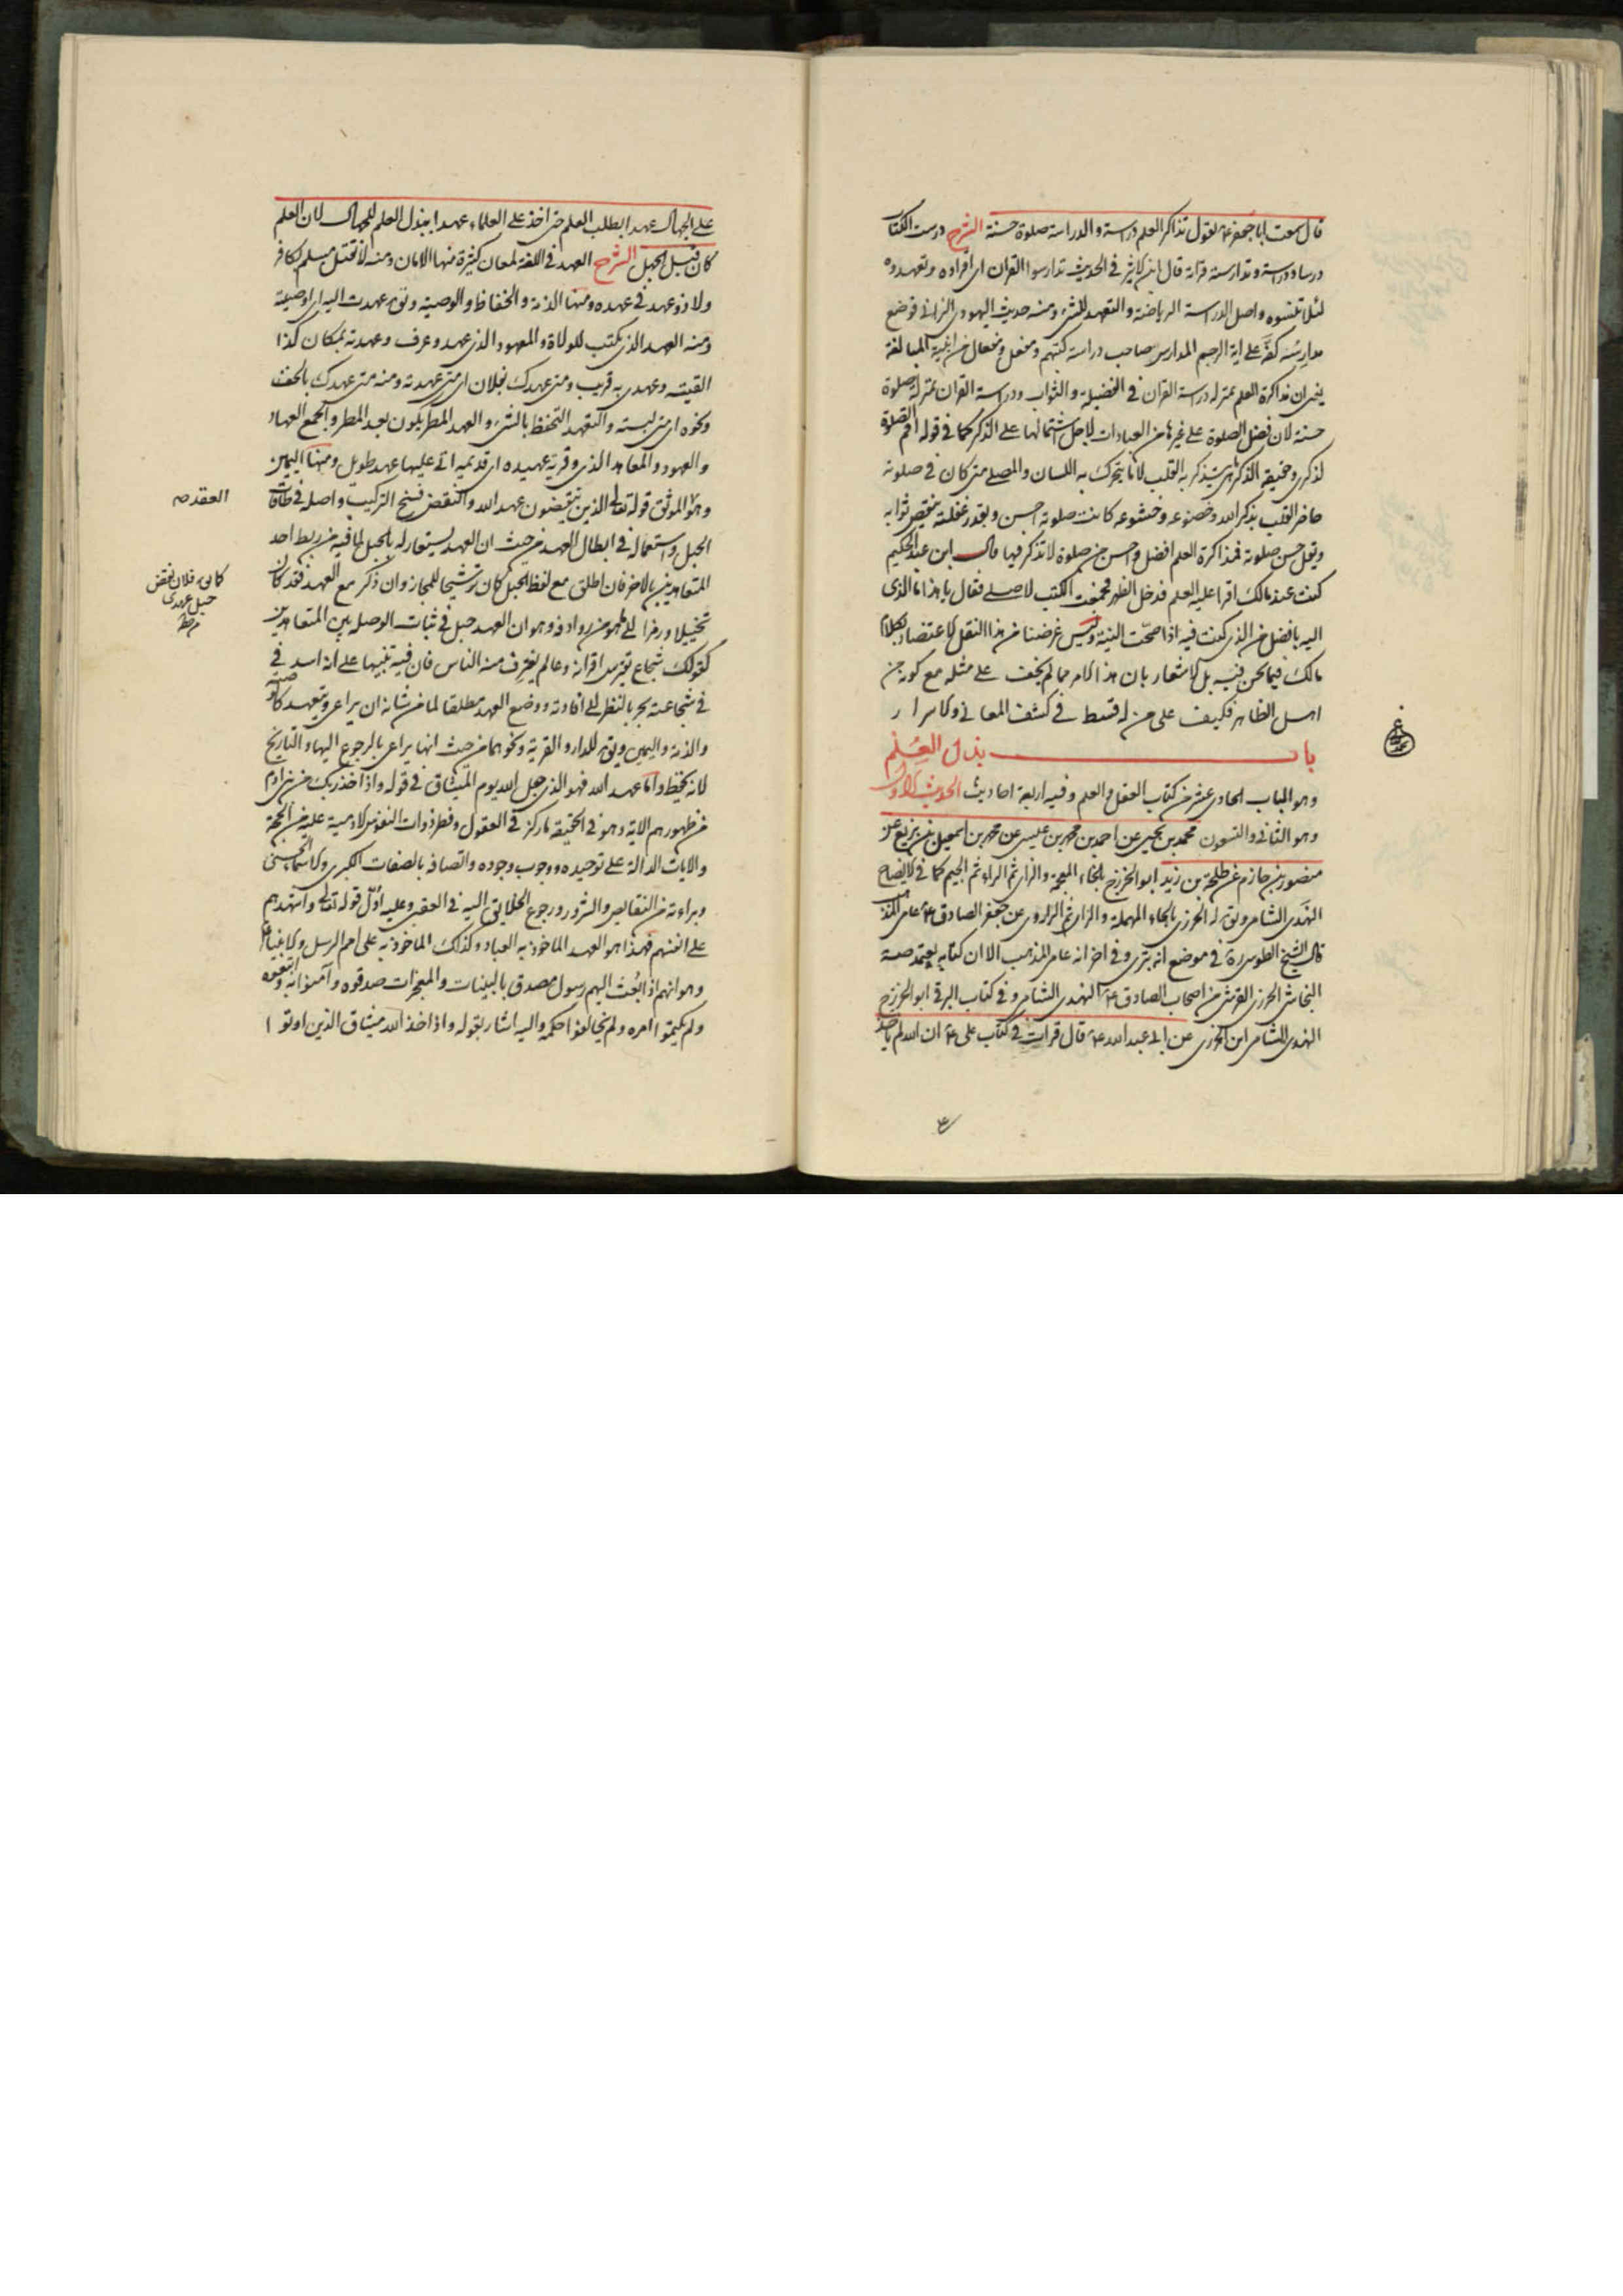 قال سمعت ابا جعفر ع يقول تذاكر العلم دراسة والدراسة صلوة حسنة الشرح درست الكتاب
درسا ودراسة وتدارسته قراته قال ابن الاثير في الحديث تدارسوا القران اى اقراوه وتعهدوه
لئلا تنسوه واصل الدراسة الرياضة والتعهد للشئ ومنه حديث اليهودى الزانى فوضع
مدارسه كفه على اية الرجم المدارس صاحب دراسة كتبهم ومفعل ومفعال من ابنية المبالغة
يعنى ان مذاكرة العلم بمنزلة دراسة القران في الفضيلة والثواب ودراسة القران بمنزلة صلوة
حسنة لان فضل الصلوة على غيرها من العبادات لاجل اشتمالها على الذكر كما في قوله اقم الصلوة
لذكرى وحقيقة الذكر ما يتذكر به القلب لا ما يتحرك به اللسان والمصلى متى كان في صلوته
حاضر القلب بذكر الله وخضوعه وخشوعه كانت صلوته احسن وبقدر غفلته ينقص ثوابه
ويقل حسن صلوته فمذاكرة العلم افضل واحسن من صلوة لا تذكر فيها قال ابن عبد الحكيم
كنت عند مالك اقرا عليه العلم فدخل الظهر فجمعت الكتب لاصلى فقال يا هذا ما الذى
اليه بافضل من الذى كنت فيه اذا صحت النية وليس غرضنا من هذا النقل الاعتضاد بكلام
مالك فيما نحن فيه بل الاشعار بان هذا الامر مما لم يخف على مثله مع كونه من
اهل الظاهر فكيف على من له قسط في كشف المعانى والاسرار
باب بذل العلم
وهو الباب الحادى عشر من كتاب العقل والعلم وفيه اربعة احاديث الحديث الاول
وهو الثانى والتسعون محمد بن يحيى عن احمد بن محمد بن عيسى عن محمد بن اسمعيل بن بزيع عن
منصور بن حازم عن طلحة بن زيد ابو الخزرج بالخاء المعجمة والزاى ثم الراء ثم الجيم كما في الايضاح
النهدى الشامى ويق له الحزرى بالحاء المهملة والزاى ثم الراء روى عن جعفر الصادق ع عامى المذهب
قال الشيخ الطوسى ره في موضع انه بترى وفي اخر انه عامى المذهب الا ان كتابه يعتمد صه
النجاشى الحزرى القرشى من اصحاب الصادق ع النهدى الشامى وفي كتاب البرقى ابو الخزرج
النهدى الشامى ابن الحزرى عن ابى عبد الله ع قال قرات في كتاب على ع ان الله لم ياخذ
على الجهال عهدا بطلب العلم حتى اخذ على العلماء عهدا ببذل العلم للجهال لان العلم
كان قبل الجهل الشرح العهد في اللغة لمعان كثيرة منها الامان ومنه لا تقتل مسلم بكافر
ولا ذو عهد في عهده ومنها الذمة والحفاظ والوصية وتق عهدت اليه اى اوصيته
ومنه العهد الذى يكتب للولاة والمعهود الذى عهد وعرف وعهدته بمكان كذا
لقيته وعهدى به قريب ومتى عهدك بفلان اى متى عهدته ومنه متى عهدك بالخف
ونحوه اى متى لبسته والتعهد التحفظ بالشئ والعهد المطر يكون بعد المطر والجمع العهاد
والعهود والمعاهد الذى وقرية عهيده اى قديمه اتى عليها عهد طويل ومنها اليمين
وهو الموثق قوله تعالى الذين ينقضون عهد الله والنقض فسخ التركيب واصله في طاقات
العقد صه
الحبل واستعماله في ابطال العهد من حيث ان العهد يستعار له بالحبل لما فيه من ربط احد
المتعاهدين بالاخر فان اطلق مع لفظ الحبل كان ترشيحا للمجاز وان ذكر مع العهد فقد كان
كانه فلان نقض
حبل عهدى
تخييلا ورمزا الى ما هو من روادفه وهو ان العهد حبل في ثبات الوصلة بين المتعاهدين
كقولك شجاع يفترس اقرانه وعالم يغترف منه الناس فان فيه تنبيها على انه اسد في
في شجاعته بحر بالنظر الى افادته ووضع العهد مطلقا لما من شانه ان يراعى ويتعهد كالوصية
والذمة واليمين ويق للدار والقرية ونحوهما من حيث انها يراعى بالرجوع اليها والتاريخ
لانه يحفظ واما عهد الله فهو الذى جعل الله يوم الميثاق في قوله واذ اخذ ربك من بنى ادم
من ظهورهم الاية وهو في الحقيقة ما ركز في العقول وفطر ذوات النفوس الادمية عليه من الحجة
والايات الدالة على توحيده ووجوب وجوده واتصافه بالصفات الكبرى والاسماء الحسنى
وبراءته من النقايص والشرور ورجوع الخلايق اليه في العقبى وعليه اول قوله تعالى واشهدهم
على انفسهم فهذا هو العهد الماخوذ به العباد وكذلك الماخوذ به على امم الرسل والانبياء
وهو انهم اذا بعث اليهم رسول مصدق بالبينات والمعجزات صدقوه وآمنوا به واتبعوه
ولم يكتموا امره ولم يخالفوا حكمه واليه اشار بقوله واذ اخذ الله ميثاق الذين اوتوا